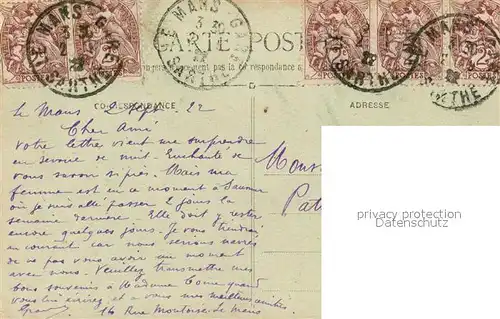 LE MANS GARE
SARTHE
LE MANS GARE
SARTHE
CARTE POSTALE
la correspondance
CORRESPONDANCE
ADRESSE
Le Mans 2 Sept. 22
Cher Ami
Votre lettre vient me surprendre
en service de nuit. Enchanté de
vous savoir si près. Mais ma
femme est en ce moment à Saumur
où je suis allé passer 2 jours la
semaine dernière. Elle doit y rester
encore quelques jours. Je vous tiendrai
au courant car nous serions navrés
de ne pas vous avoir un moment
avec nous. Veuillez transmettre mes
bons souvenirs à Madame quand
vous lui écrirez et à vous mes meilleures amitiés
16 Rue Montoise Le Mans
privacy protection
Datenschutz